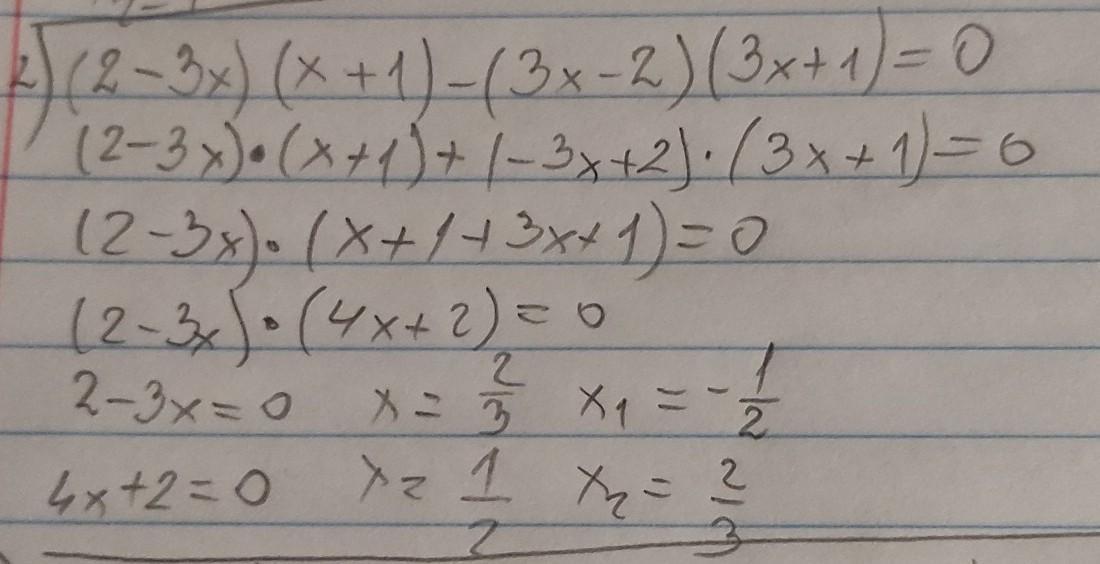 2) (2-3x)(x+1)-(3x-2)(3x+1)=0
(2-3x)·(x+1)+(-3x+2)·(3x+1)=0
(2-3x)·(x+1+3x+1)=0
(2-3x)·(4x+2)=0
2-3x=0 x=2/3 x₁=-1/2
4x+2=0 x=1/2 x₂=2/3